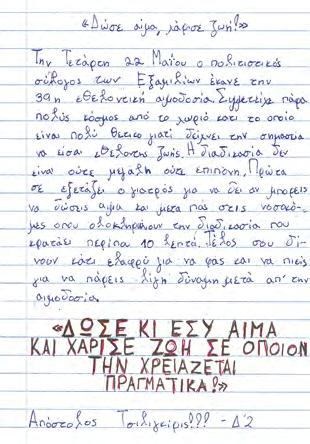 «Δώσε αίμα, χάρισε ζωή!»
Την Τετάρτη 22 Μαΐου ο πολιτιστικός
σύλογος των Εξαμιλίων έκανε την
39η εθελοντική αιμοδοσία. Συμμετείχε πάρα
πολύς κόσμος από το χωριό κάτι το οποίο
είναι πολύ θετικό γιατί δείχνει την σημασία
να είσαι εθελοντής ζωής. Η διαδικασία δεν
είναι ούτε μεγάλη ούτε επιπόνη. Πρώτα
σε εξετάζει ο γιατρός για να δει αν μπορείς
να δώσεις αίμα και μετά πας στις νοσοκό-
μες όπου ολοκληρώνουν την διαδικασία που
κρατάει περίπου 10 λεπτά. Τέλος σου δί-
νουν κάτι ελαφρύ για να φας και να πιείς
για να πάρεις λίγη δύναμη μετά απ' την
αιμοδοσία.
«ΔΩΣΕ ΚΙ ΕΣΥ ΑΙΜΑ
ΚΑΙ ΧΑΡΙΣΕ ΖΩΗ ΣΕ ΟΠΟΙΟΝ
ΤΗΝ ΧΡΕΙΑΖΕΤΑΙ
ΠΡΑΓΜΑΤΙΚΑ!»
Απόστολος Τσιλιγκίρης!!! - Δ'2